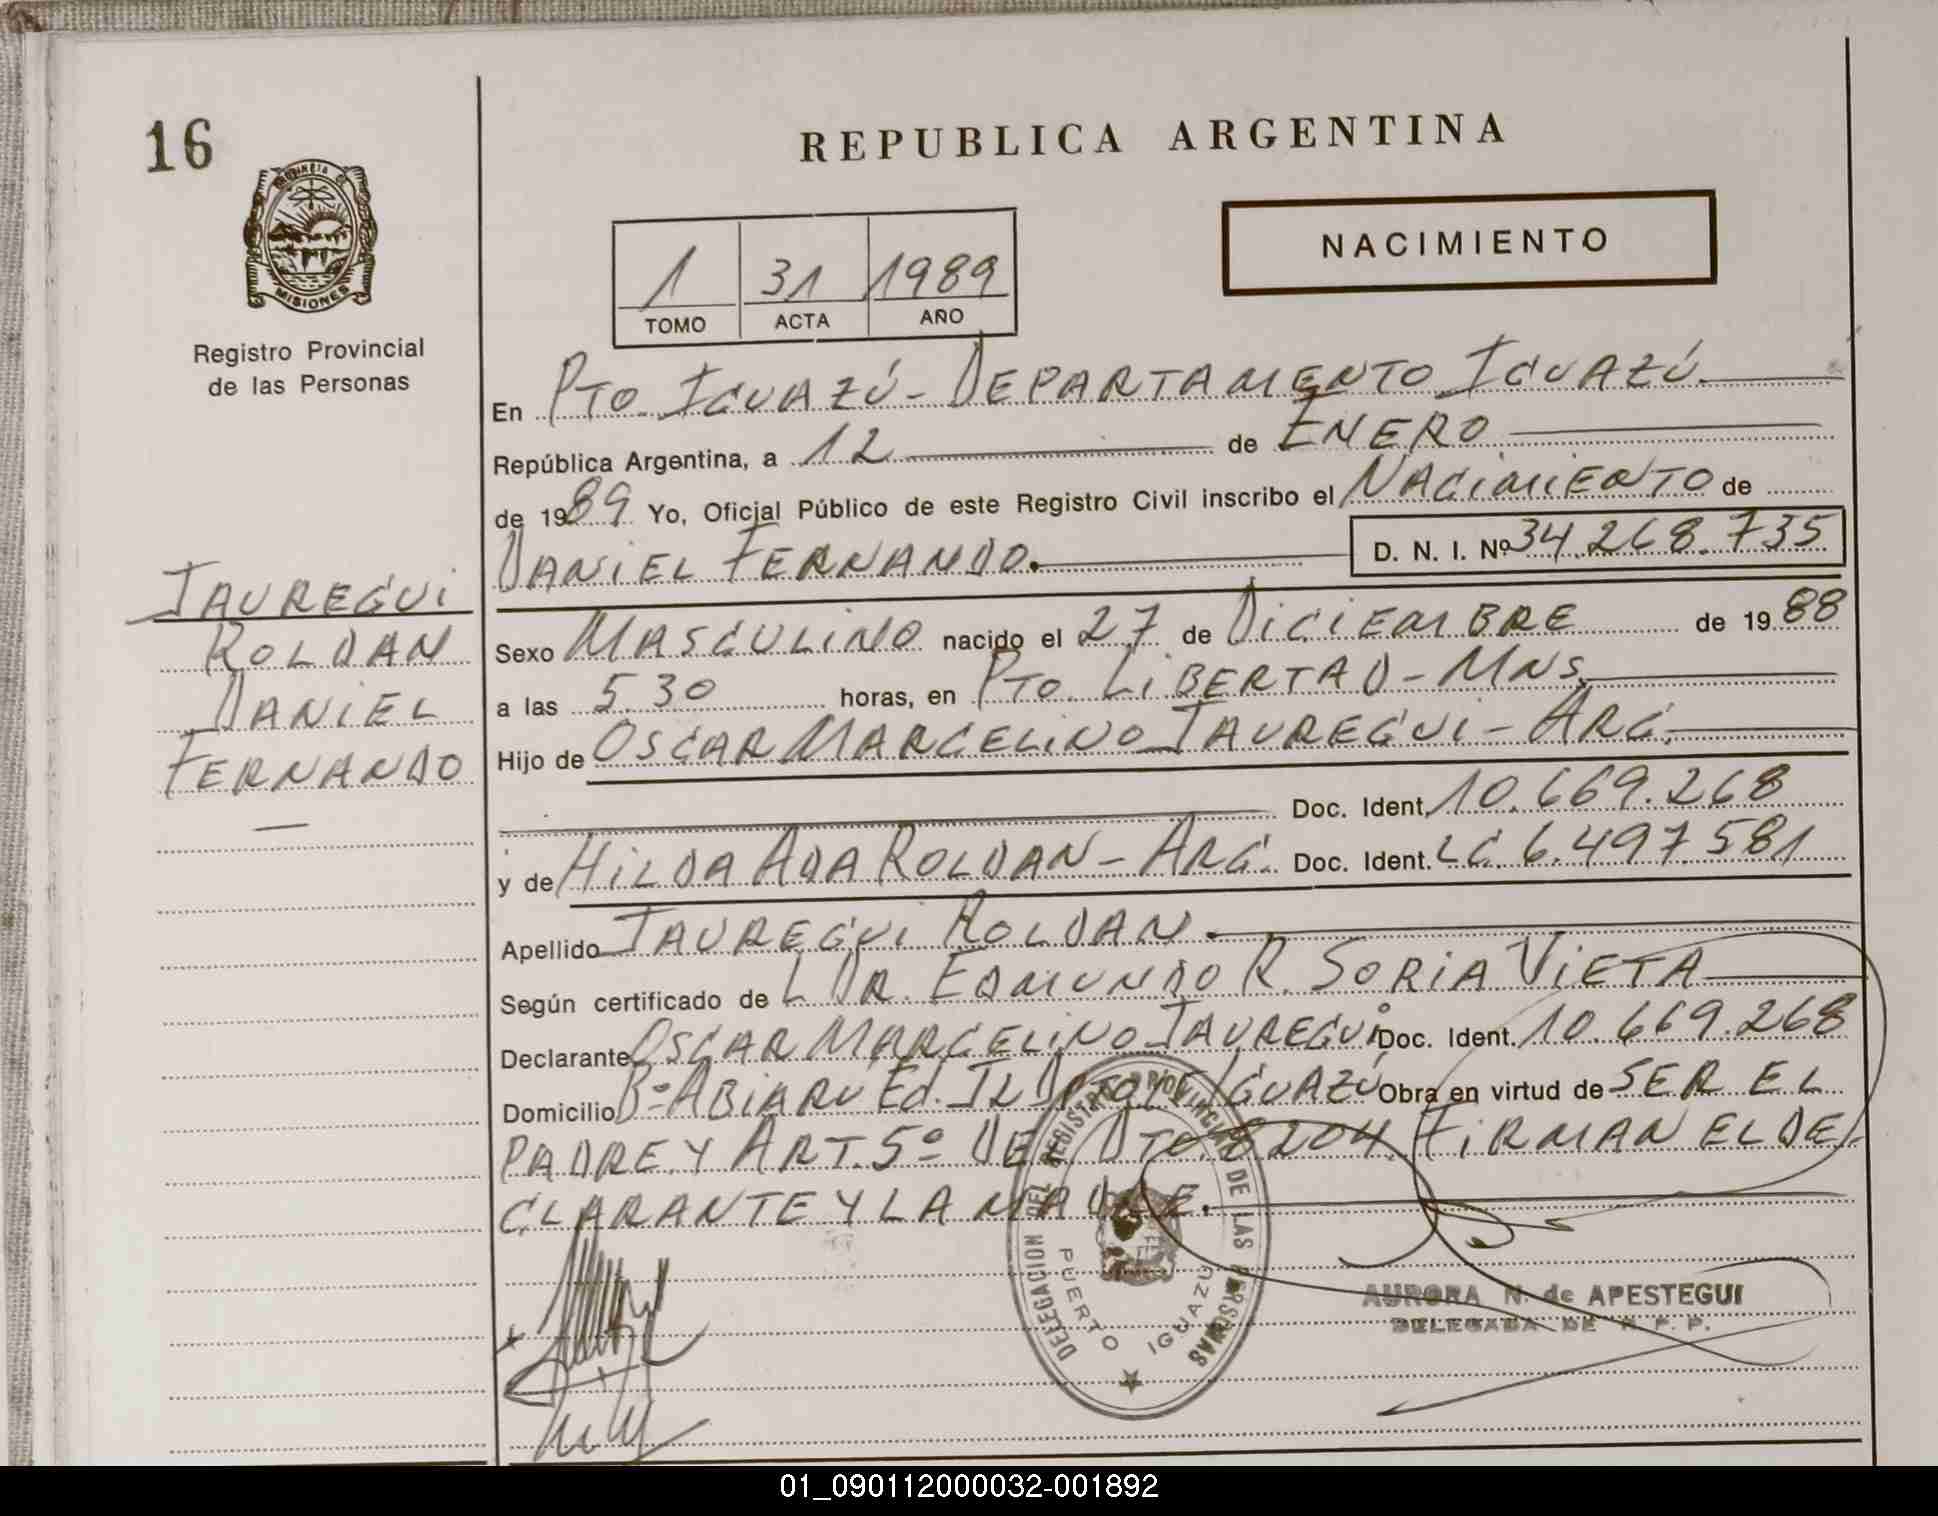 16
REPUBLICA ARGENTINA
PROVINCIA DE
MISIONES
Registro Provincial
de las Personas
1 31 1989
TOMO ACTA AÑO
NACIMIENTO
En PTO. IGUAZÚ - DEPARTAMENTO IGUAZÚ.
República Argentina, a 12 de ENERO
de 1989 Yo, Oficial Público de este Registro Civil inscribo el NACIMIENTO de
DANIEL FERNANDO. D. N. I. Nº 34.268.735
JAUREGUI
ROLDAN
DANIEL
FERNANDO
Sexo MASCULINO nacido el 27 de DICIEMBRE de 1988
a las 5.30 horas, en PTO. LIBERTAD - MNS.
Hijo de OSCAR MARCELINO JAUREGUI - ARG.
Doc. Ident. 10.669.268
y de HILDA ADA ROLDAN - ARG. Doc. Ident. LC. 6.497.581
Apellido JAUREGUI ROLDAN.
Según certificado de L DR. EDMUNDO R. SORIA VIETA
Declarante OSCAR MARCELINO JAUREGUI Doc. Ident. 10.669.268
Domicilio Bº ABIARU Ed. IGUAZÚ Obra en virtud de SER EL
PADRE Y ART. 5º DE DTO. 8204. FIRMAN EL DE
CLARANTE Y LA MADRE.
DELEGACION DEL REGISTRO PROVINCIAL DE LAS PERSONAS
PUERTO IGUAZU
AURORA N. de APESTEGUI
DELEGADA DE R. P. P.
01_090112000032-001892